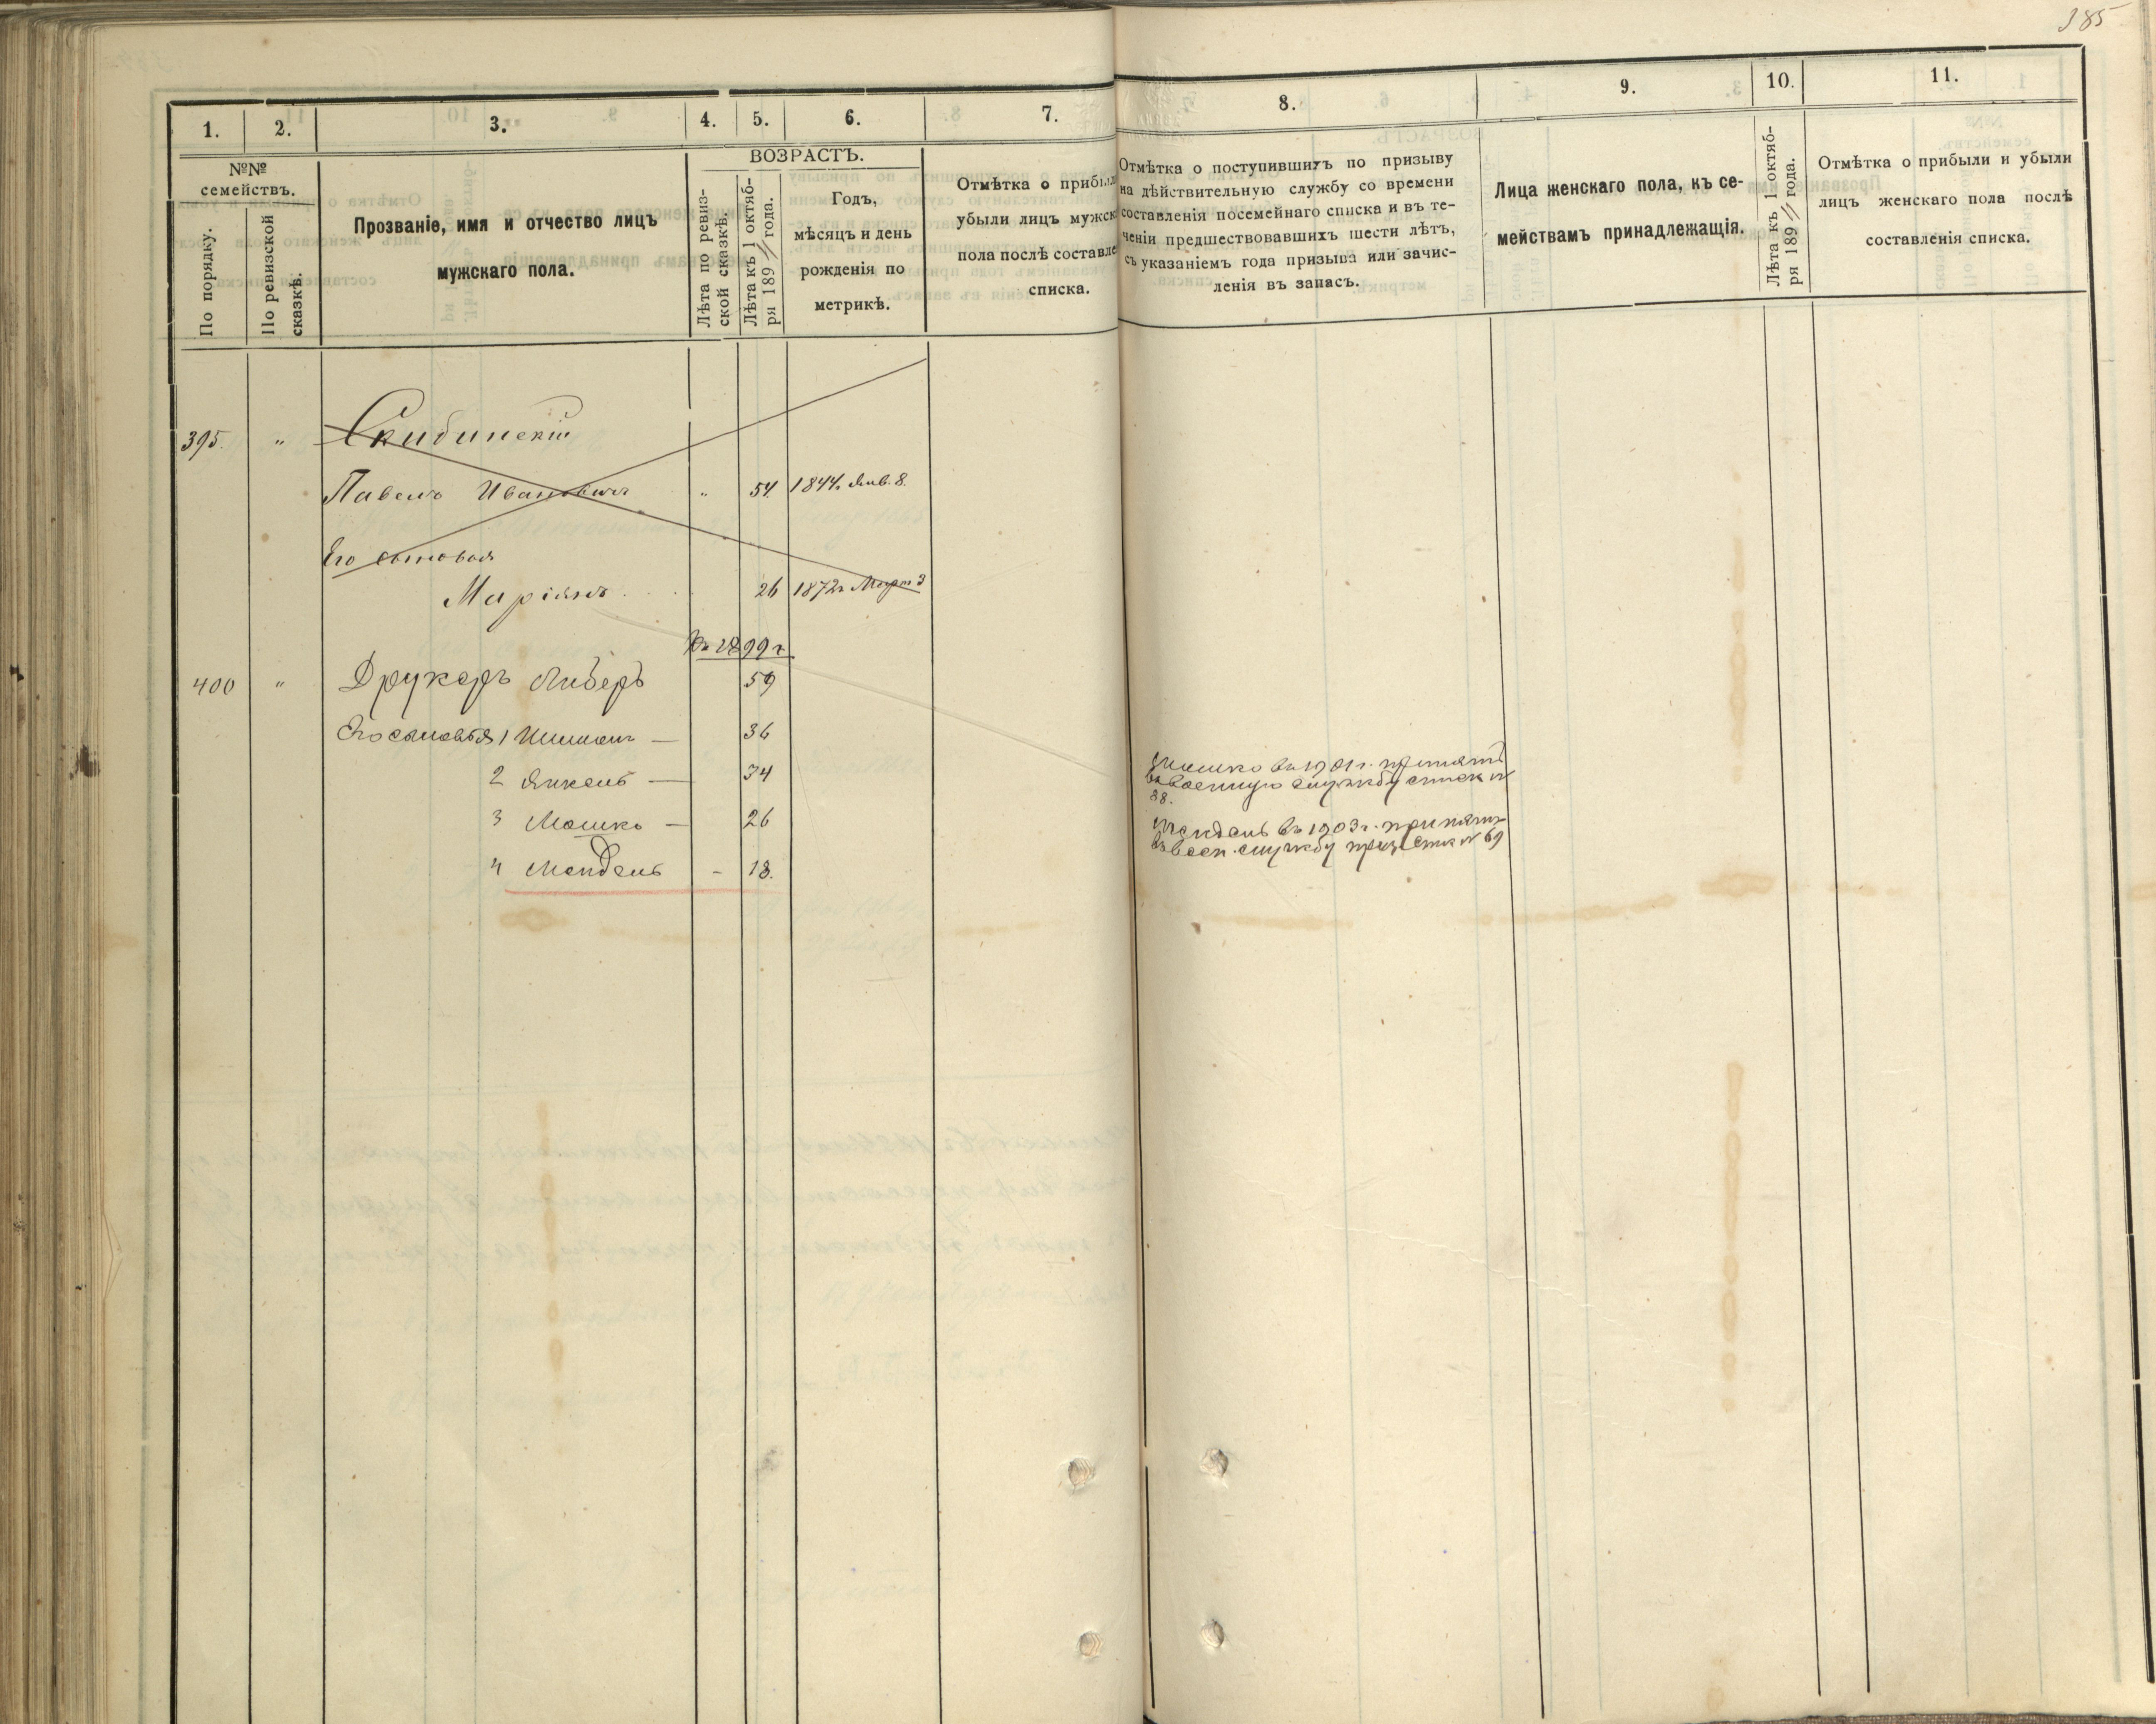 385
1.
2.
3.
4.
5.
6.
7.
8.
9.
10.
11.
№№
семействъ.
По порядку.
По ревизской
сказкѣ.
Прозваніе, имя и отчество лицъ
мужскаго пола.
ВОЗРАСТЪ.
Лѣта по ревиз-
ской сказкѣ.
Лѣта къ 1 октяб-
ря 189 года.
Годъ,
мѣсяцъ и день
рожденія по
метрикѣ.
Отмѣтка о прибыли
убыли лицъ мужск
пола послѣ составле
списка.
Отмѣтка о поступившихъ по призыву
на дѣйствительную службу со времени
составленія посемейнаго списка и въ те-
ченіи предшествовавшихъ шести лѣтъ,
съ указаніемъ года призыва или зачис-
ленія въ запасъ.
Лица женскаго пола, къ се-
мействамъ принадлежащія.
Лѣта къ 1 октяб-
ря 189 года.
Отмѣтка о прибыли и убыли
лицъ женскаго пола послѣ
составленія списка.
395. " Скибинскій
Павелъ Ивановичъ " 54. 1844 г. Янв. 8.
Его сыновья
Маріянъ 26 1872 г. Март 3
Къ 1899 г.
400 " Друкеръ Либеръ 59
Его сыновья 1 Шимонъ — 36
2 Янкель — 34
3 Мошко — 26
4 Мендель - 18.
Мошко въ 1901 г. принятъ
въ военную службу списк №
38.
Мендель въ 1903 г. принятъ
въ воен. службу приз. спис № 69